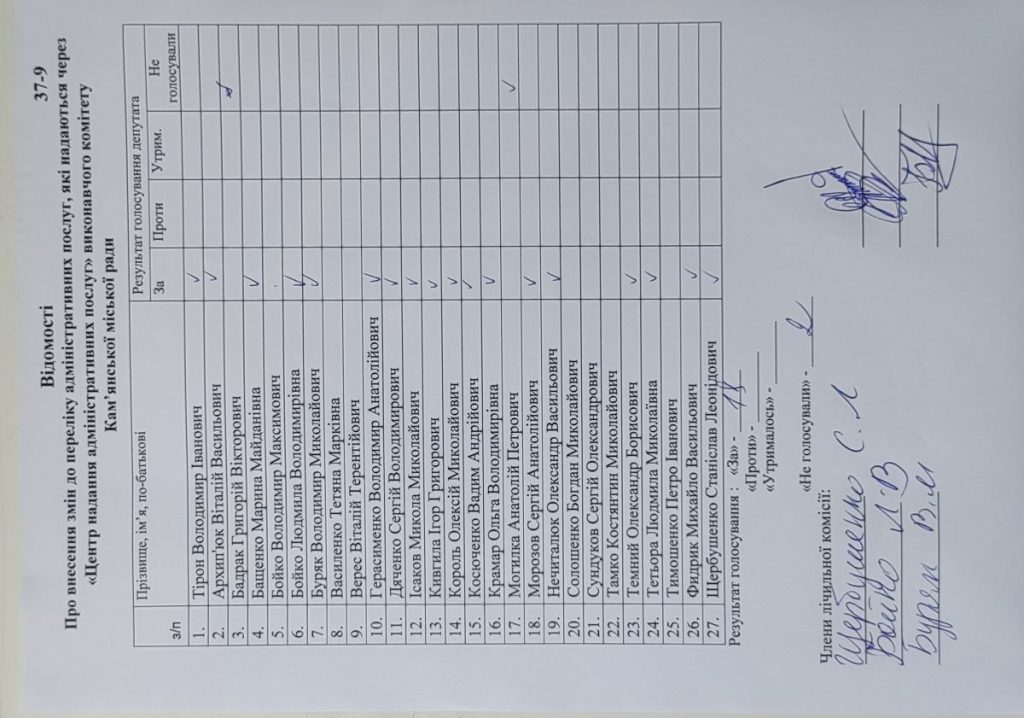 Відомості 37-9
Про внесення змін до переліку адміністративних послуг, які надаються через
«Центр надання адміністративних послуг» виконавчого комітету
Кам’янської міської ради
з/п Прізвище, ім’я, по-батькові Результат голосування депутата
За Проти Утрим. Не голосували
1. Тірон Володимир Іванович ✓
2. Архип'юк Віталій Васильович ✓
3. Бадрак Григорій Вікторович ✓
4. Бащенко Марина Майданівна ✓
5. Бойко Володимир Максимович
6. Бойко Людмила Володимирівна ✓
7. Буряк Володимир Миколайович ✓
8. Василенко Тетяна Марківна
9. Верес Віталій Терентійович
10. Герасименко Володимир Анатолійович ✓
11. Дяченко Сергій Володимирович ✓
12. Ісаков Микола Миколайович ✓
13. Кивгила Ігор Григорович ✓
14. Король Олексій Миколайович ✓
15. Косюченко Вадим Андрійович ✓
16. Крамар Ольга Володимирівна ✓
17. Могилка Анатолій Петрович ✓
18. Морозов Сергій Анатолійович ✓
19. Нечиталюк Олександр Васильович ✓
20. Солошенко Богдан Миколайович
21. Сундуков Сергій Олександрович
22. Тамко Костянтин Миколайович
23. Темний Олександр Борисович ✓
24. Тетьора Людмила Миколаївна ✓
25. Тимошенко Петро Іванович
26. Фидрик Михайло Васильович ✓
27. Щербушенко Станіслав Леонідович ✓
Результат голосування : «За» - 18
«Проти» -
«Утрималось» -
«Не голосували» - 2
Члени лічильної комісії:
Щербушенко С. Л
Бойко Л. В
Буряк В. М